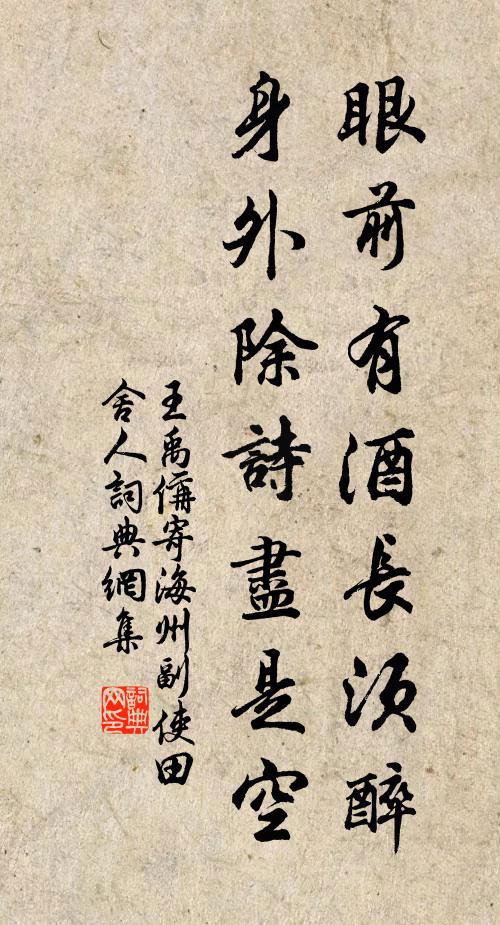 眼前有酒長須醉
身外除詩盡是空
王禹偁寄海州副使田
舍人詞典網集
詞典
网印